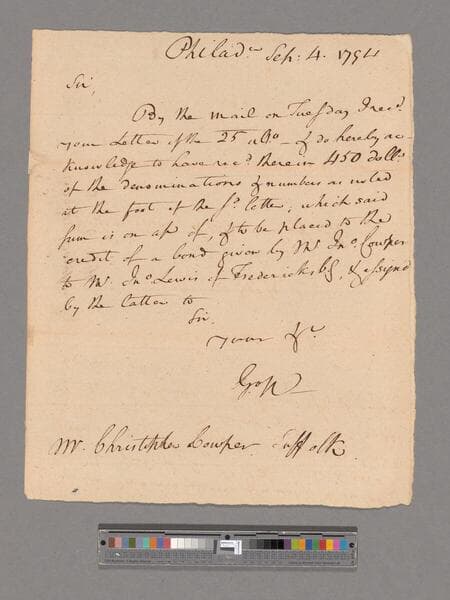 Philad.ª Sep: 4. 1794
Sir,
By the mail on Tuesday I rec.d
your Letter of the 25 ulto – & do hereby ac-
knowledge to have rec.d therein 450 doll.s
of the denominations & numbers as noted
at the foot of the s.d letter, which said
sum is on acct of, & to be placed to the
credit of a bond given by Mr Jn.o Cowper
to Mr. Jn.o Lewis of Fredericksbg, & assigned
by the latter to
Sir,
your &c
G
Mr. Christopher Cowper Suffolk.